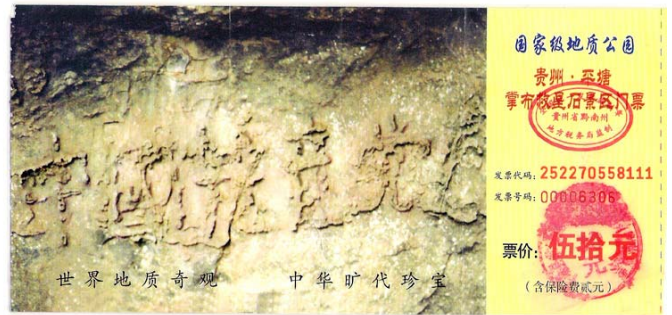 中國共产党
世界地质奇观 中华旷代珍宝
国家级地质公园
贵州·平塘
掌布救星石景区门票
贵州省黔南州
地方税务局监制
发票代码:252270558111
发票号码:00006306
票价:伍拾元
(含保险费贰元)